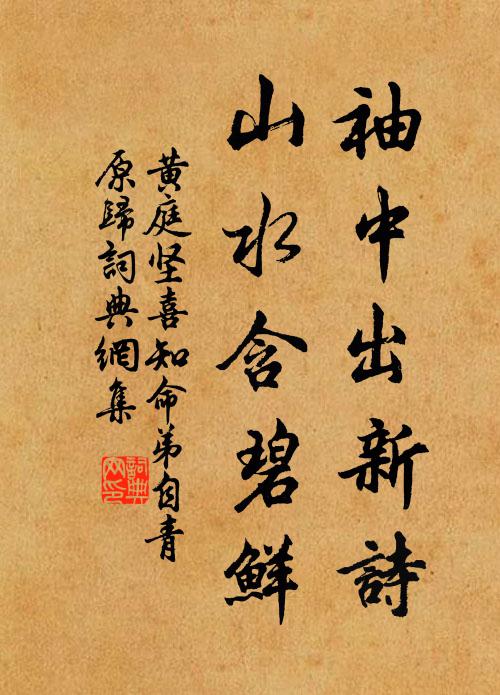 袖中出新詩
山水含碧鮮
黃庭坚喜知命弟自青
原歸詞典網集
詞典
网印